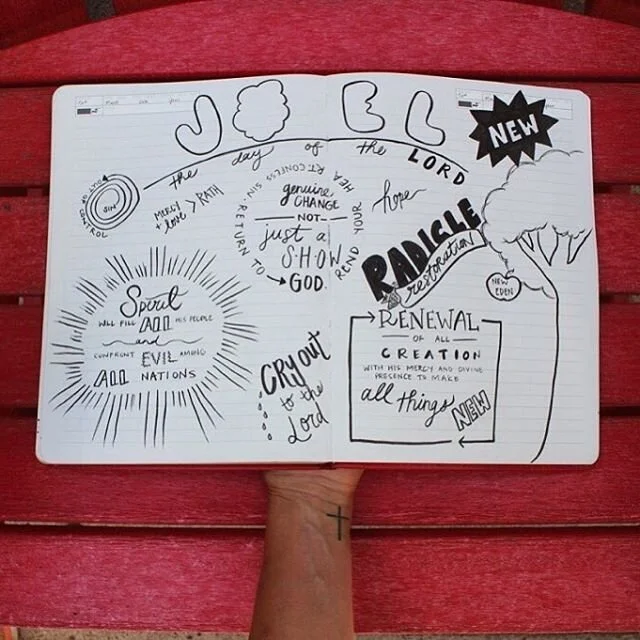 JOEL
NEW
the day of the LORD
SIN
OF CONTROL
MERCY
+ love > RATH
REND YOUR HEART. CONFESS SIN
RETURN TO
genuine
CHANGE
NOT
just a
SHOW
GOD.
hope
RADICLE
restoration
NEW
EDEN
Spirit
WILL FILL ALL HIS PEOPLE
and
CONFRONT EVIL AMONG
ALL NATIONS
CRY OUT
to the
Lord
RENEWAL
OF ALL
CREATION
WITH HIS MERCY AND DIVINE
PRESENCE TO MAKE
all things NEW